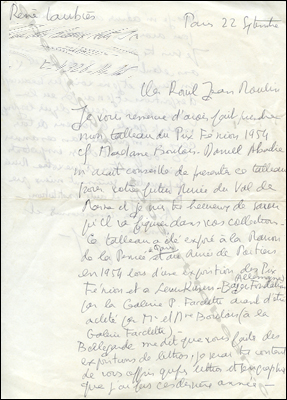 René Laubiès
Paris 22 Septembre
Raoul Jean Moulin
Je vous remercie d'avoir fait prendre
mon tableau du Prix Fénéon 1954
chez Madame Bordais. Daniel Abadie
m'avait conseillé de présenter ce tableau
pour votre futur Musée du Val de
Marne et je suis heureux de savoir
qu'il va figurer dans vos collections
Ce tableau a été exposé à la Maison
de la Pensée et au Musée de Poitiers
en 1954 lors d'une exposition des Prix
Fénéon et à Leverkusen Bayer
Allemagne
par la Galerie P Facchetti avant d'être
acheté par Mr et Mme Bordais (à la
Galerie Facchetti)
Bellegarde me dit que vous faites des
expositions de lettres, je serai très content
de vous offrir quelques lettres et
que j'ai fait ces dernières années